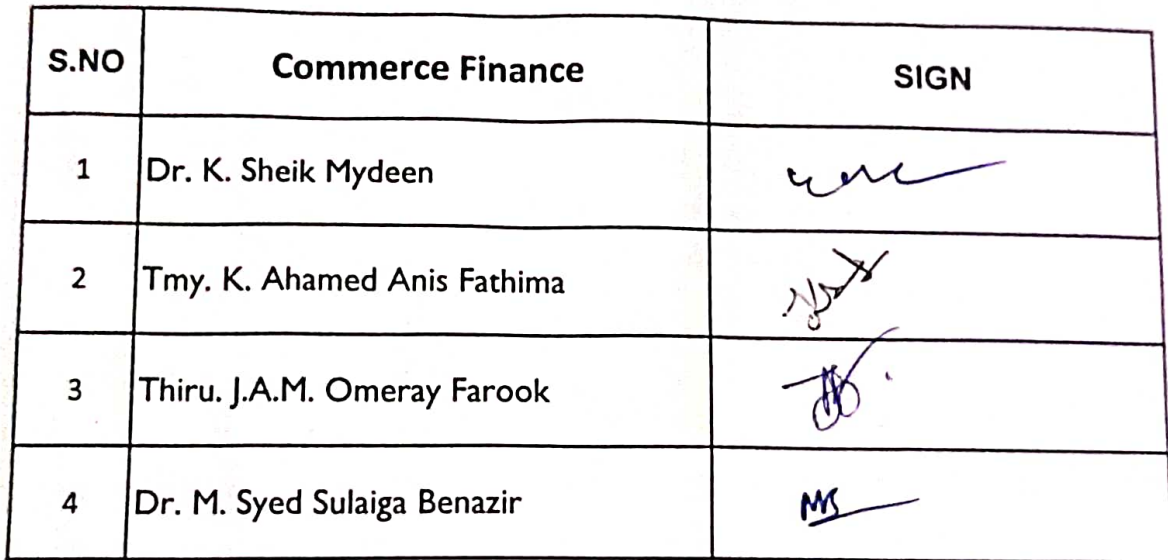 S.NO Commerce Finance SIGN
1 Dr. K. Sheik Mydeen
2 Tmy. K. Ahamed Anis Fathima
3 Thiru. J.A.M. Omeray Farook
4 Dr. M. Syed Sulaiga Benazir